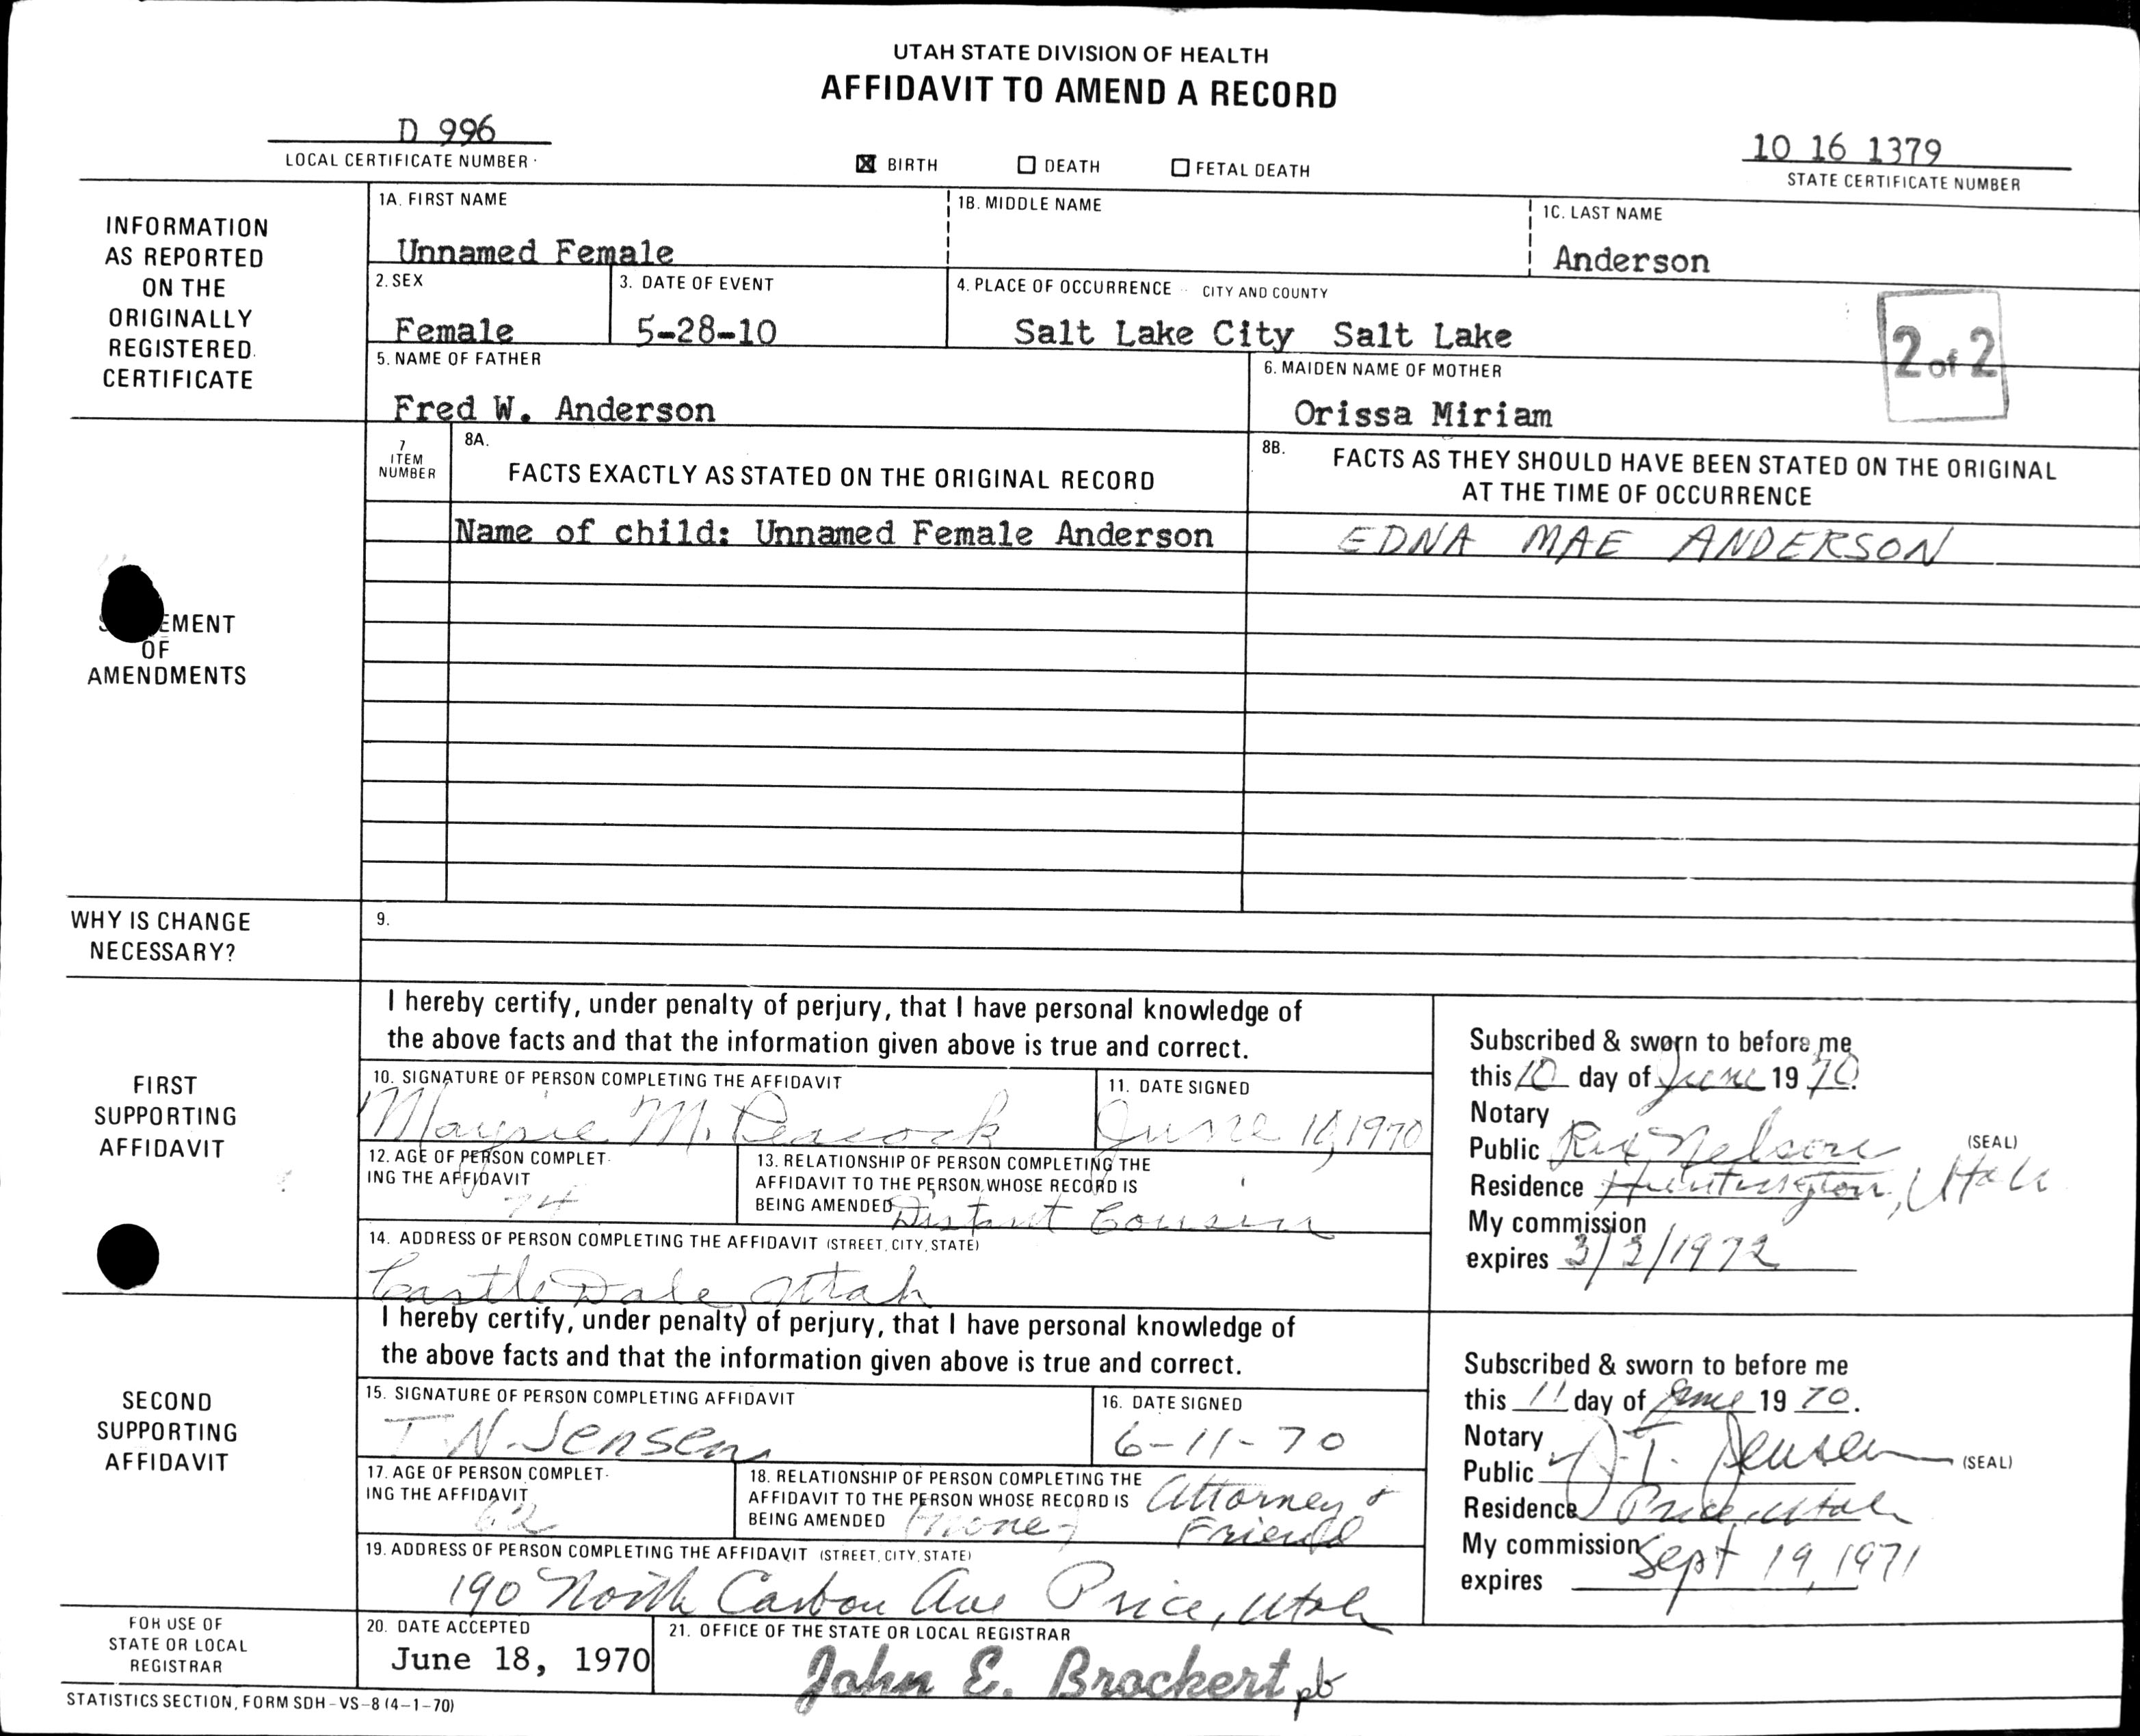 UTAH STATE DIVISION OF HEALTH
AFFIDAVIT TO AMEND A RECORD
D 996
LOCAL CERTIFICATE NUMBER
☒ BIRTH ☐ DEATH ☐ FETAL DEATH
10 16 1379
STATE CERTIFICATE NUMBER
INFORMATION
AS REPORTED
ON THE
ORIGINALLY
REGISTERED
CERTIFICATE
1A. FIRST NAME
Unnamed Female
1B. MIDDLE NAME
1C. LAST NAME
Anderson
2. SEX
Female
3. DATE OF EVENT
5-28-10
4. PLACE OF OCCURRENCE CITY AND COUNTY
Salt Lake City Salt Lake
2 of 2
5. NAME OF FATHER
Fred W. Anderson
6. MAIDEN NAME OF MOTHER
Orissa Miriam
EMENT
OF
AMENDMENTS
7
ITEM
NUMBER
8A.
FACTS EXACTLY AS STATED ON THE ORIGINAL RECORD
8B.
FACTS AS THEY SHOULD HAVE BEEN STATED ON THE ORIGINAL
AT THE TIME OF OCCURRENCE
Name of child: Unnamed Female Anderson
EDNA MAE ANDERSON
WHY IS CHANGE
NECESSARY?
9.
FIRST
SUPPORTING
AFFIDAVIT
I hereby certify, under penalty of perjury, that I have personal knowledge of
the above facts and that the information given above is true and correct.
10. SIGNATURE OF PERSON COMPLETING THE AFFIDAVIT
M. Peacock
11. DATE SIGNED
June 10, 1970
12. AGE OF PERSON COMPLET-
ING THE AFFIDAVIT
74
13. RELATIONSHIP OF PERSON COMPLETING THE
AFFIDAVIT TO THE PERSON WHOSE RECORD IS
BEING AMENDED Distant Cousin
14. ADDRESS OF PERSON COMPLETING THE AFFIDAVIT (STREET, CITY, STATE)
Castle Dale, Utah
Subscribed & sworn to before me
this 10 day of June 19 70.
Notary
Public Rex Nelson (SEAL)
Residence Huntington, Utah
My commission
expires 3/3/1972
SECOND
SUPPORTING
AFFIDAVIT
I hereby certify, under penalty of perjury, that I have personal knowledge of
the above facts and that the information given above is true and correct.
15. SIGNATURE OF PERSON COMPLETING AFFIDAVIT
T. N. Jensen
16. DATE SIGNED
6-11-70
17. AGE OF PERSON COMPLET-
ING THE AFFIDAVIT
62
18. RELATIONSHIP OF PERSON COMPLETING THE
AFFIDAVIT TO THE PERSON WHOSE RECORD IS
BEING AMENDED (none) Attorney &
Friend
19. ADDRESS OF PERSON COMPLETING THE AFFIDAVIT (STREET, CITY, STATE)
190 North Carbon Ave Price, Utah
Subscribed & sworn to before me
this 11 day of June 19 70.
Notary
Public T. Jensen (SEAL)
Residence Price, Utah
My commission
expires Sept 19, 1971
FOR USE OF
STATE OR LOCAL
REGISTRAR
20. DATE ACCEPTED
June 18, 1970
21. OFFICE OF THE STATE OR LOCAL REGISTRAR
John E. Brockert pb
STATISTICS SECTION, FORM SDH-VS-8 (4-1-70)